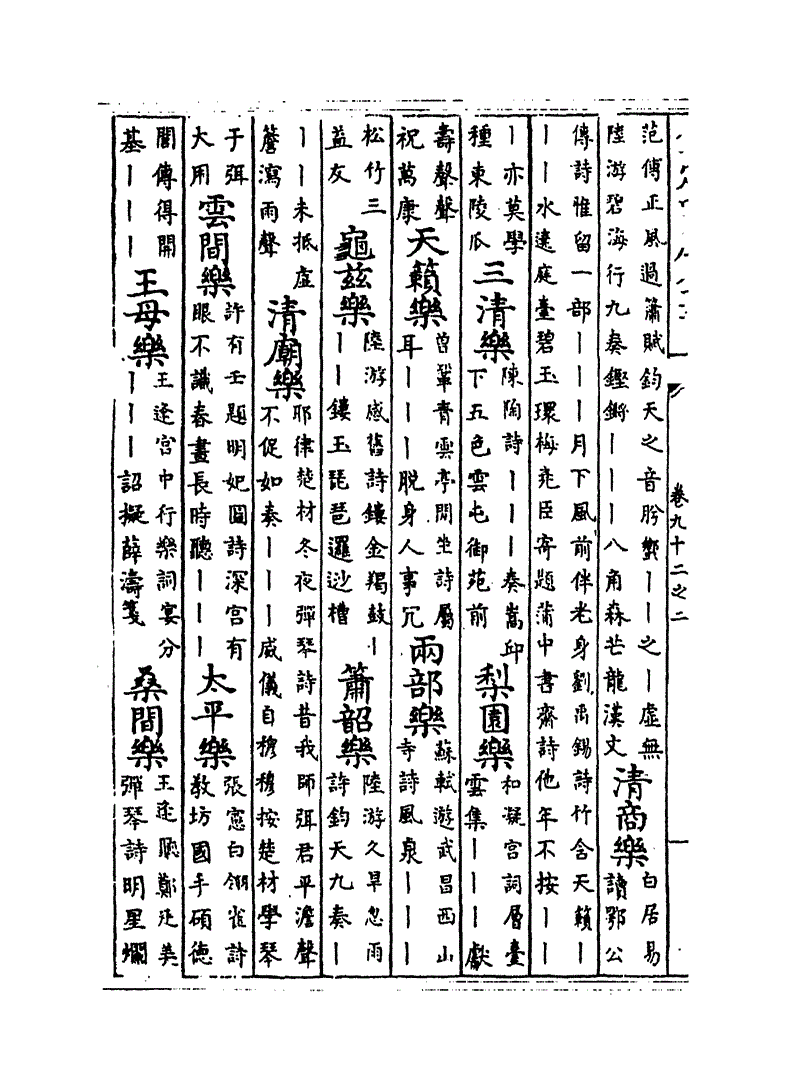 范傳正風過簫賦鈞天之音肸蠁丨丨之丨虛無
陸游碧海行九奏鏗鏘丨丨丨八角森芒龍漢文
清商樂
白居易
讀鄂公
傳詩惟留一部丨丨丨月下風前伴老身劉禹錫詩竹含天籟丨
丨丨水遶庭臺碧玉環梅堯臣寄題蒲中書齋詩他年不按丨丨
丨亦莫學
種東陵瓜
三清樂
陳陶詩丨丨丨奏嵩邱
下五色雲屯御苑前
梨園樂
和凝宮詞層臺
雲集丨丨丨獻
壽聲聲
祝萬康
天籟樂
曾鞏青雲亭閒坐詩屬
耳丨丨丨脫身人事冗
兩部樂
蘇軾遊武昌西山
寺詩風泉丨丨丨
松竹三
益友
龜茲樂
陸游感舊詩鏤金羯鼓丨
丨丨鏤玉琵琶邏逤槽
簫韶樂
陸游久旱忽雨
許鈞天九奏丨
丨丨未抵虛
簷瀉雨聲
清廟樂
耶律楚材冬夜彈琴詩昔我師弭君平澹聲
不促如奏丨丨丨威儀自穆穆按楚材學琴
于弭
大用
雲間樂
許有壬題明妃圖詩深宮有
眼不識春晝長時聽丨丨丨
太平樂
張憲白翎雀詩
教坊國手碩德
閭傳得開
基丨丨丨
王母樂
王逢宮中行樂詞宴分
丨丨丨詔擬薛濤箋
桑間樂
王逢聽鄭廷美
彈琴詩明星爛
卷九十二之二